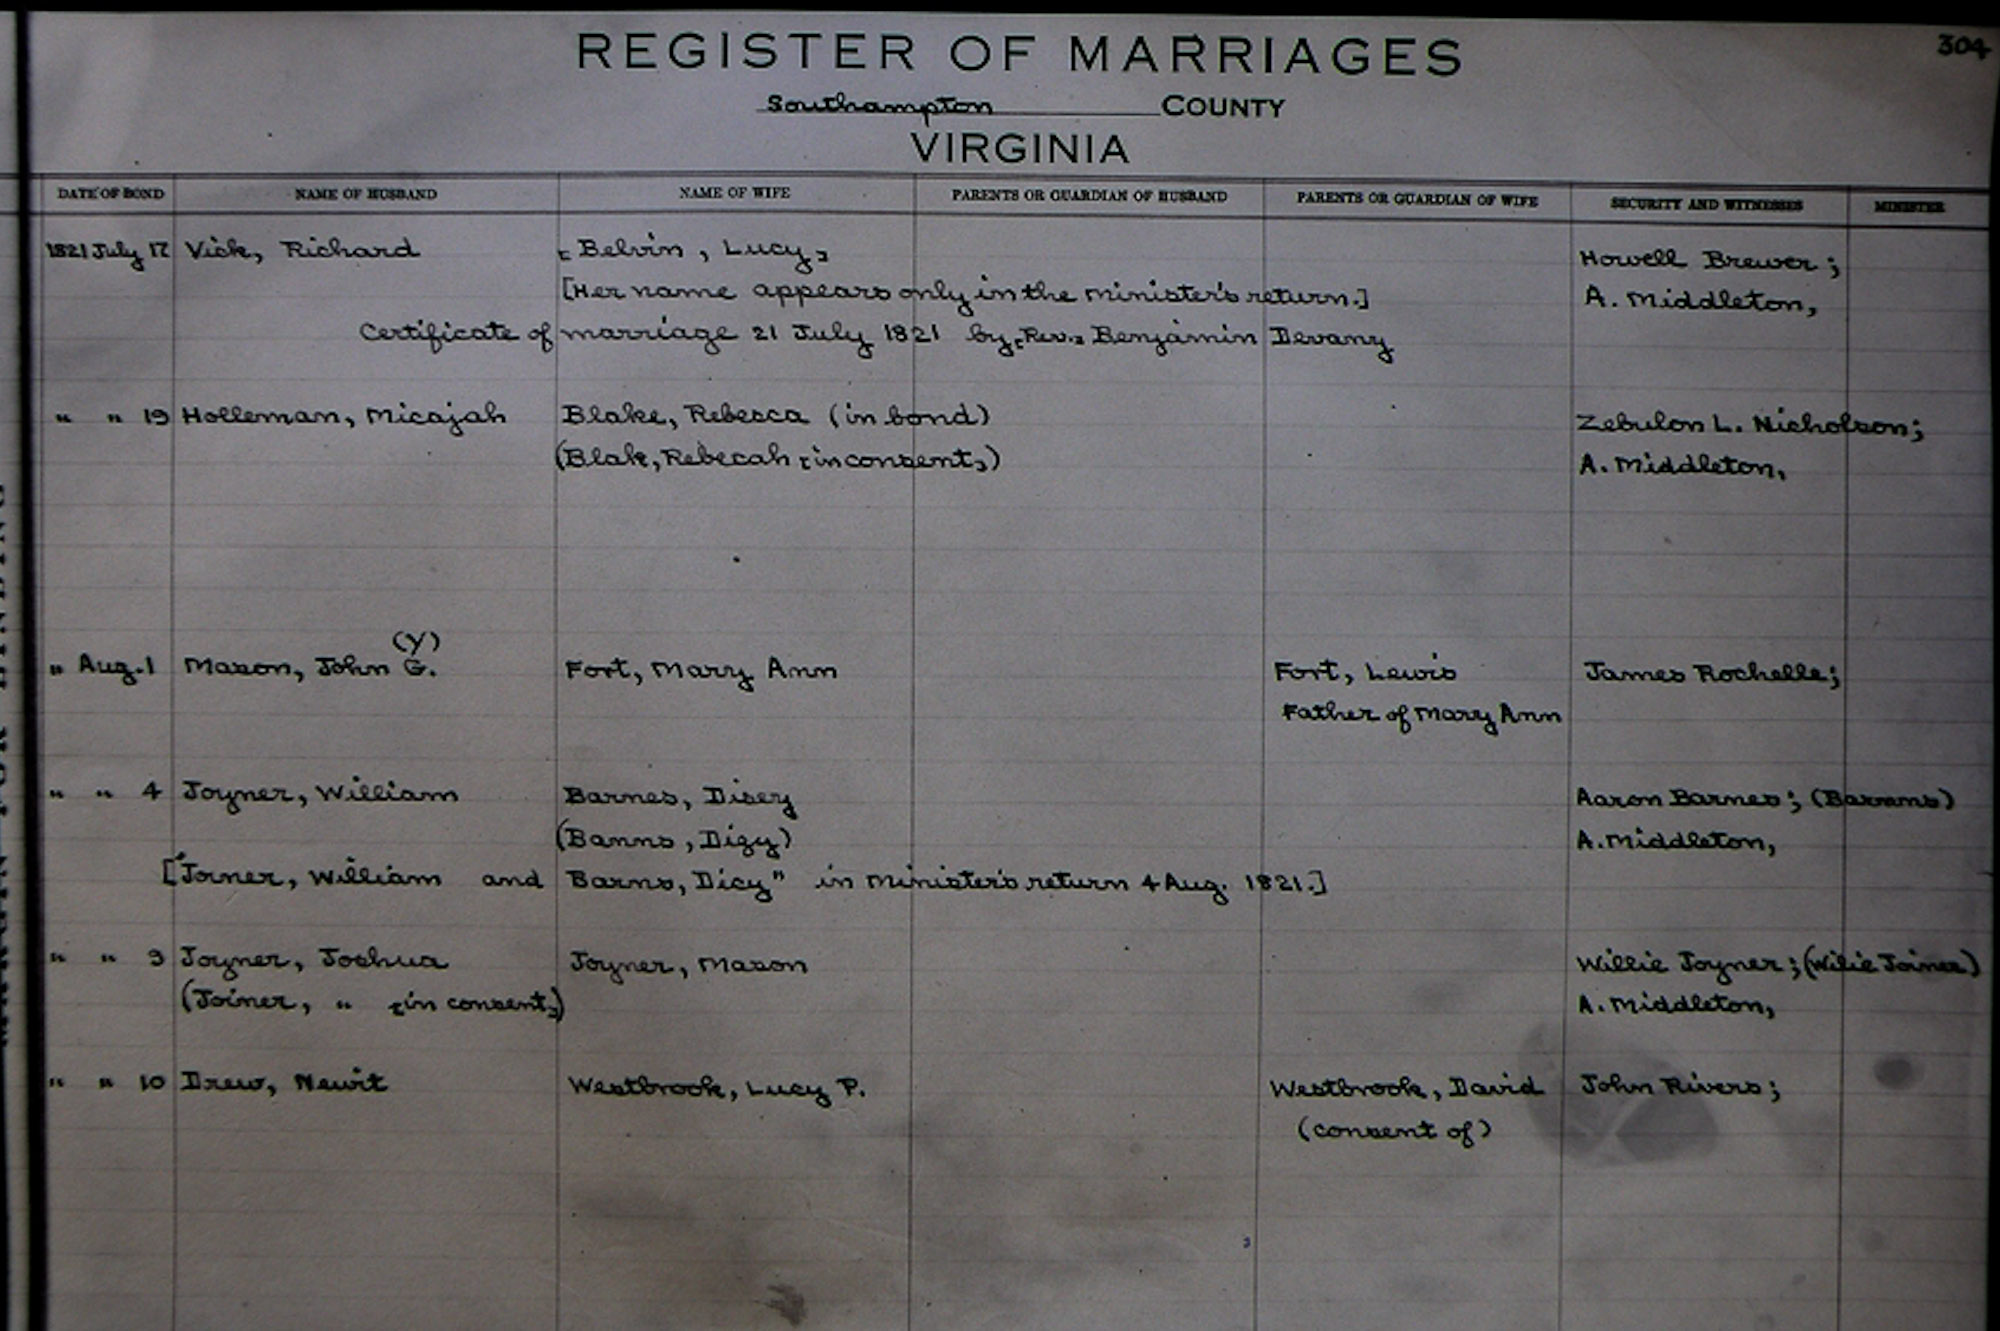 304
REGISTER OF MARRIAGES
Southampton COUNTY
VIRGINIA
DATE OF BOND NAME OF HUSBAND NAME OF WIFE PARENTS OR GUARDIAN OF HUSBAND PARENTS OR GUARDIAN OF WIFE SECURITY AND WITNESSES MINISTER
1821 July 17 Vick, Richard [Belvin, Lucy] Howell Brewer;
[Her name appears only in the minister's return.] A. Middleton,
Certificate of marriage 21 July 1821 by [Rev.] Benjamin Devany
" " 19 Holleman, Micajah Blake, Rebecca (in bond) Zebulon L. Nicholson;
(Blak, Rebecah [in consent]) A. Middleton,
(Y)
" Aug. 1 Mason, John G. Fort, Mary Ann Fort, Lewis James Rochelle;
Father of Mary Ann
" " 4 Joyner, William Barnes, Disey Aaron Barnes; (Barnns)
(Banns, Dizy) A. Middleton,
["Joiner, William and Barns, Dicy" in minister's return 4 Aug. 1821.]
" " 9 Joyner, Joshua Joyner, Mason Willie Joyner; (Wilie Joiner)
(Joiner, " [in consent]) A. Middleton,
" " 10 Drew, Newit Westbrook, Lucy P. Westbrook, David John Rivers;
(consent of)